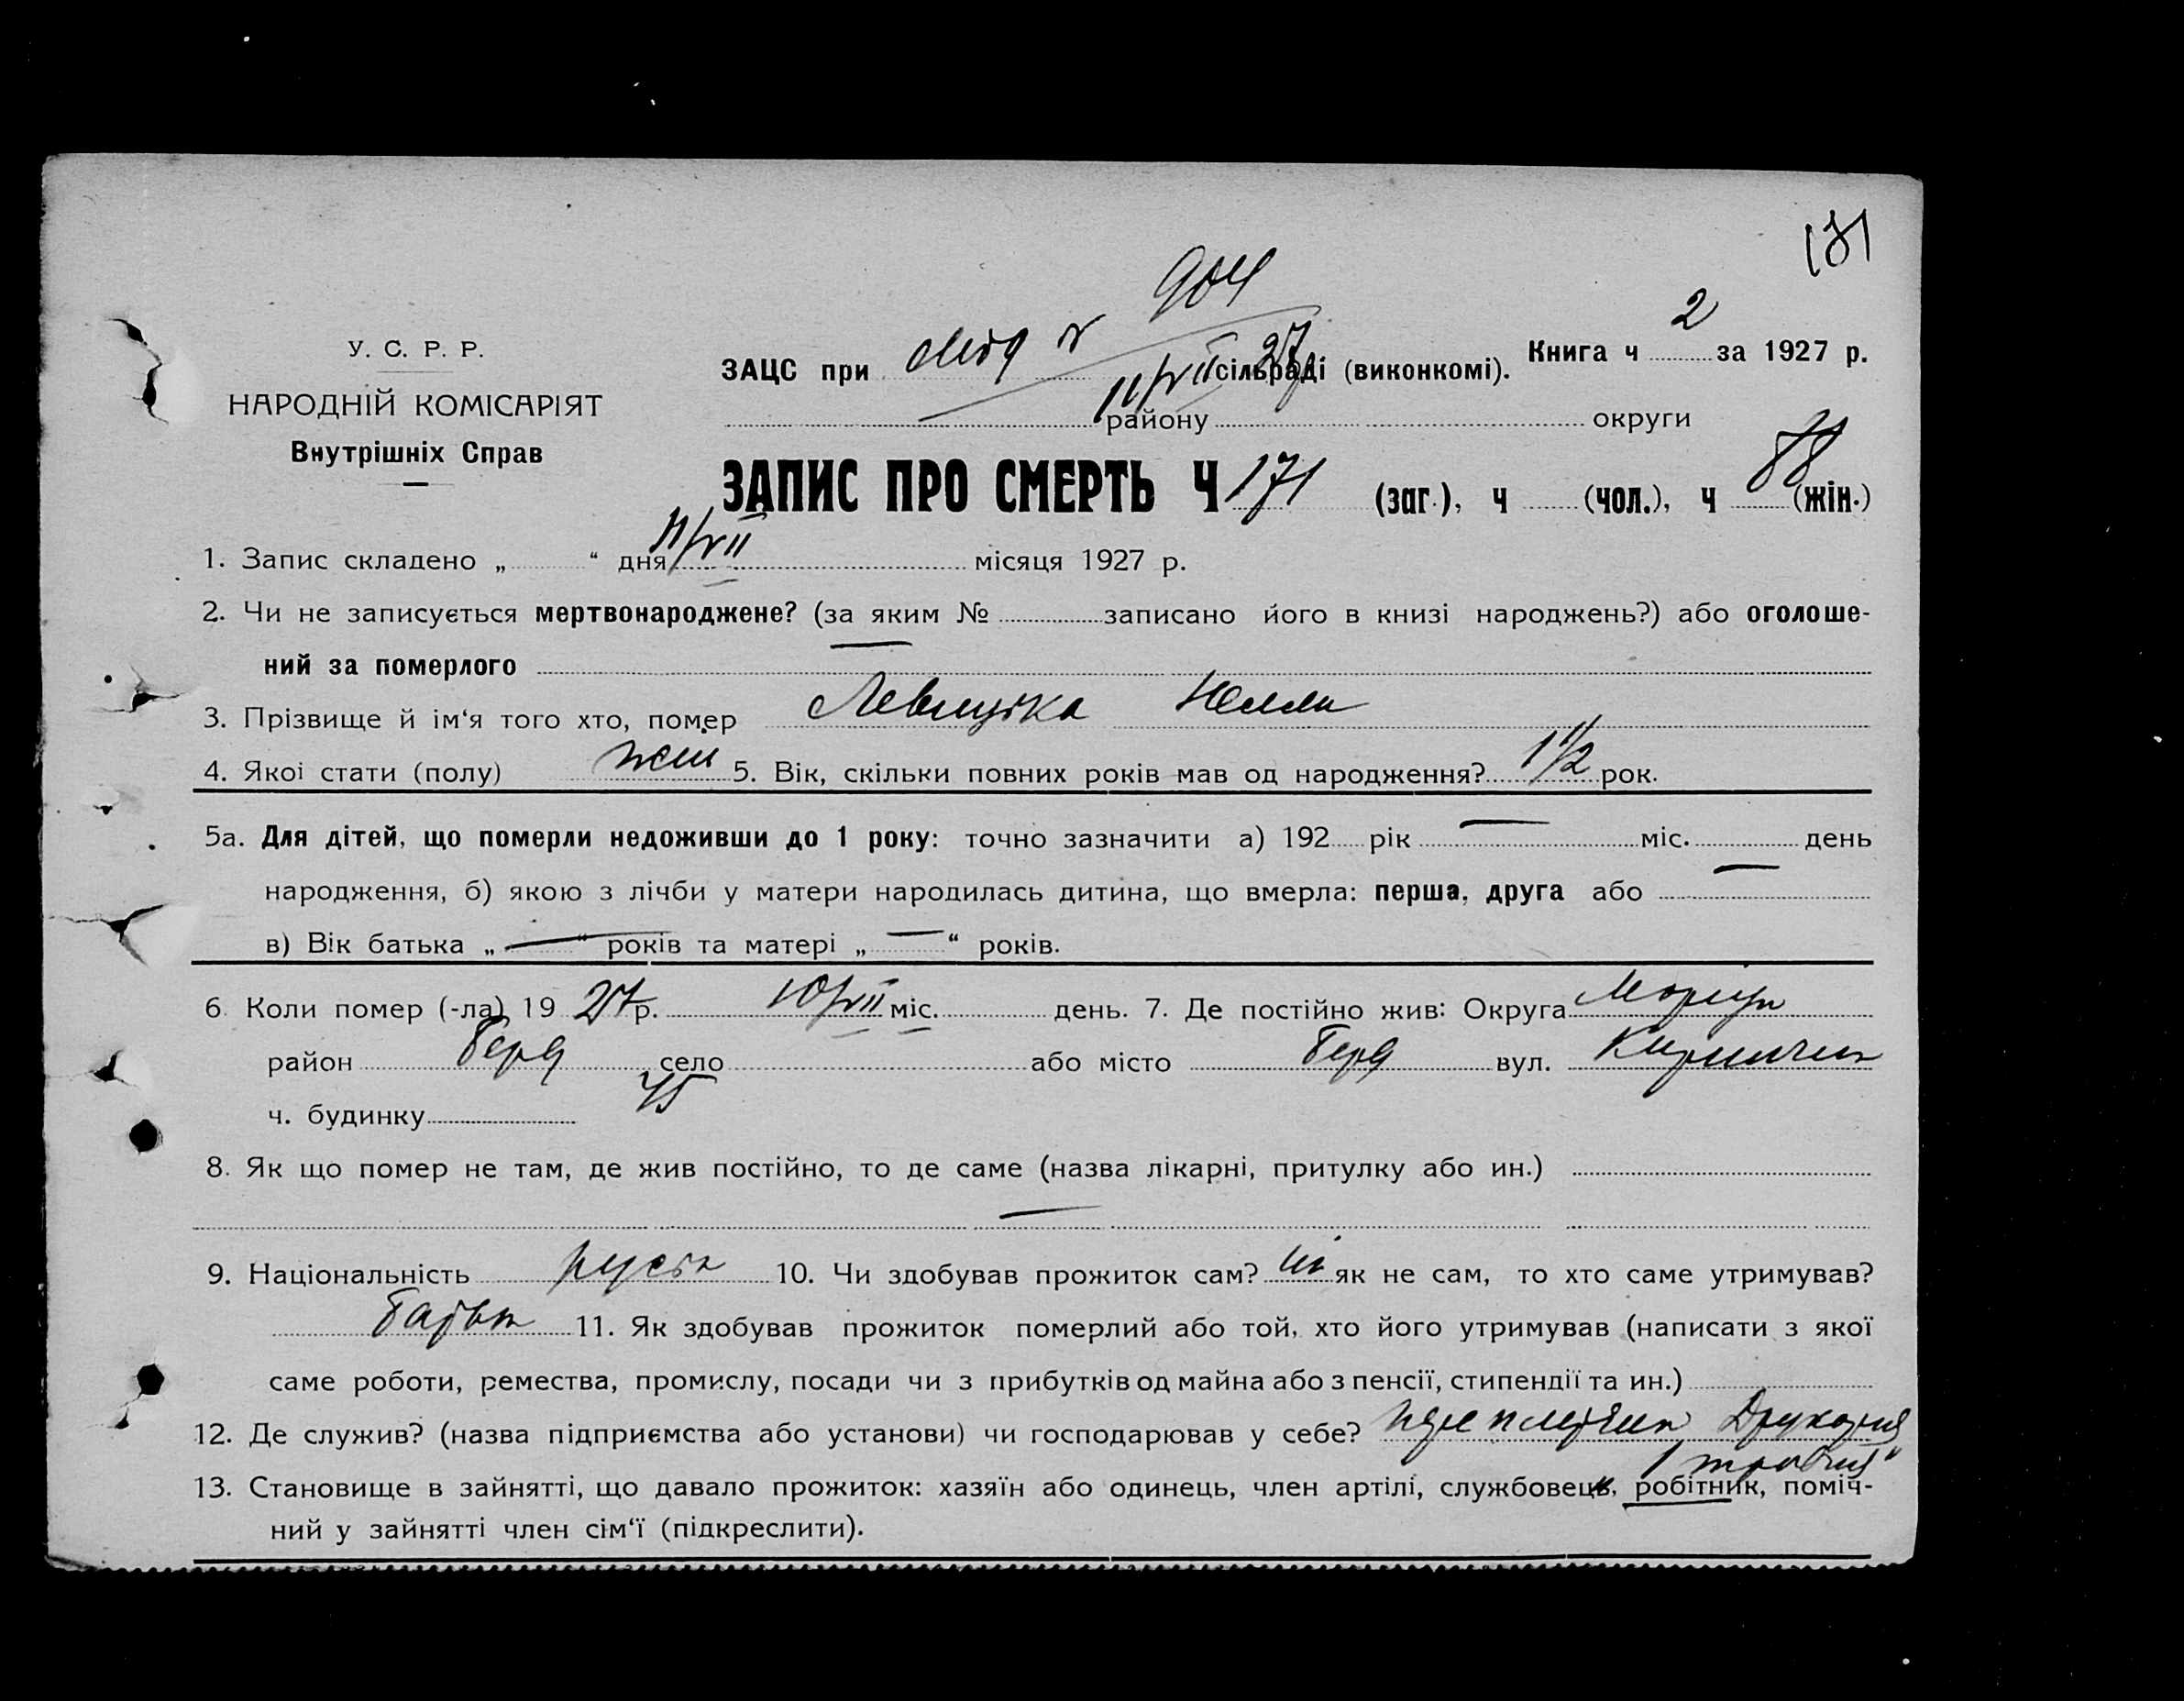 171
904
У. С. Р. Р.
НАРОДНІЙ КОМІСАРІЯТ
Внутрішніх Справ
ЗАЦС при 11/VII 27 сільраді (виконкомі). Книга ч 2 за 1927 р.
району округи
ЗАПИС ПРО СМЕРТЬ Ч 171 (заг.), ч (чол.), ч 88 (жін.)
1. Запис складено „ “ дня 11/VII місяця 1927 р.
2. Чи не записується мертвонароджене? (за яким № записано його в книзі народжень?) або оголоше-
ний за померлого —
3. Прізвище й ім‘я того хто, помер Левицька Нелли
4. Якоі стати (полу) жін 5. Вік, скільки повних років мав од народження? 1 1/2 рок.
5а. Для дітей, що померли недоживши до 1 року: точно зазначити а) 192 рік — міс. день
народження, б) якою з лічби у матери народилась дитина, що вмерла: перша, друга або —
в) Вік батька „ — “ років та матері „ — “ років.
6. Коли помер (-ла) 19 27 р. 10/VII міс. день. 7. Де постійно жив: Округа Маріуп
район Берд село або місто Берд вул. Кирпичн
ч. будинку 45
8. Як що помер не там, де жив постійно, то де саме (назва лікарні, притулку або ин.)
—
9. Національність руська 10. Чи здобував прожиток сам? ні як не сам, то хто саме утримував?
батько 11. Як здобував прожиток померлий або той, хто його утримував (написати з якої
саме роботи, ремества, промислу, посади чи з прибутків од майна або з пенсії, стипендії та ин.)
12. Де служив? (назва підприємства або установи) чи господарював у себе? Друкарня
1 травня"
13. Становище в зайнятті, що давало прожиток: хазяїн або одинець, член артілі, службовець, робітник, поміч-
ний у зайнятті член сім‘ї (підкреслити).